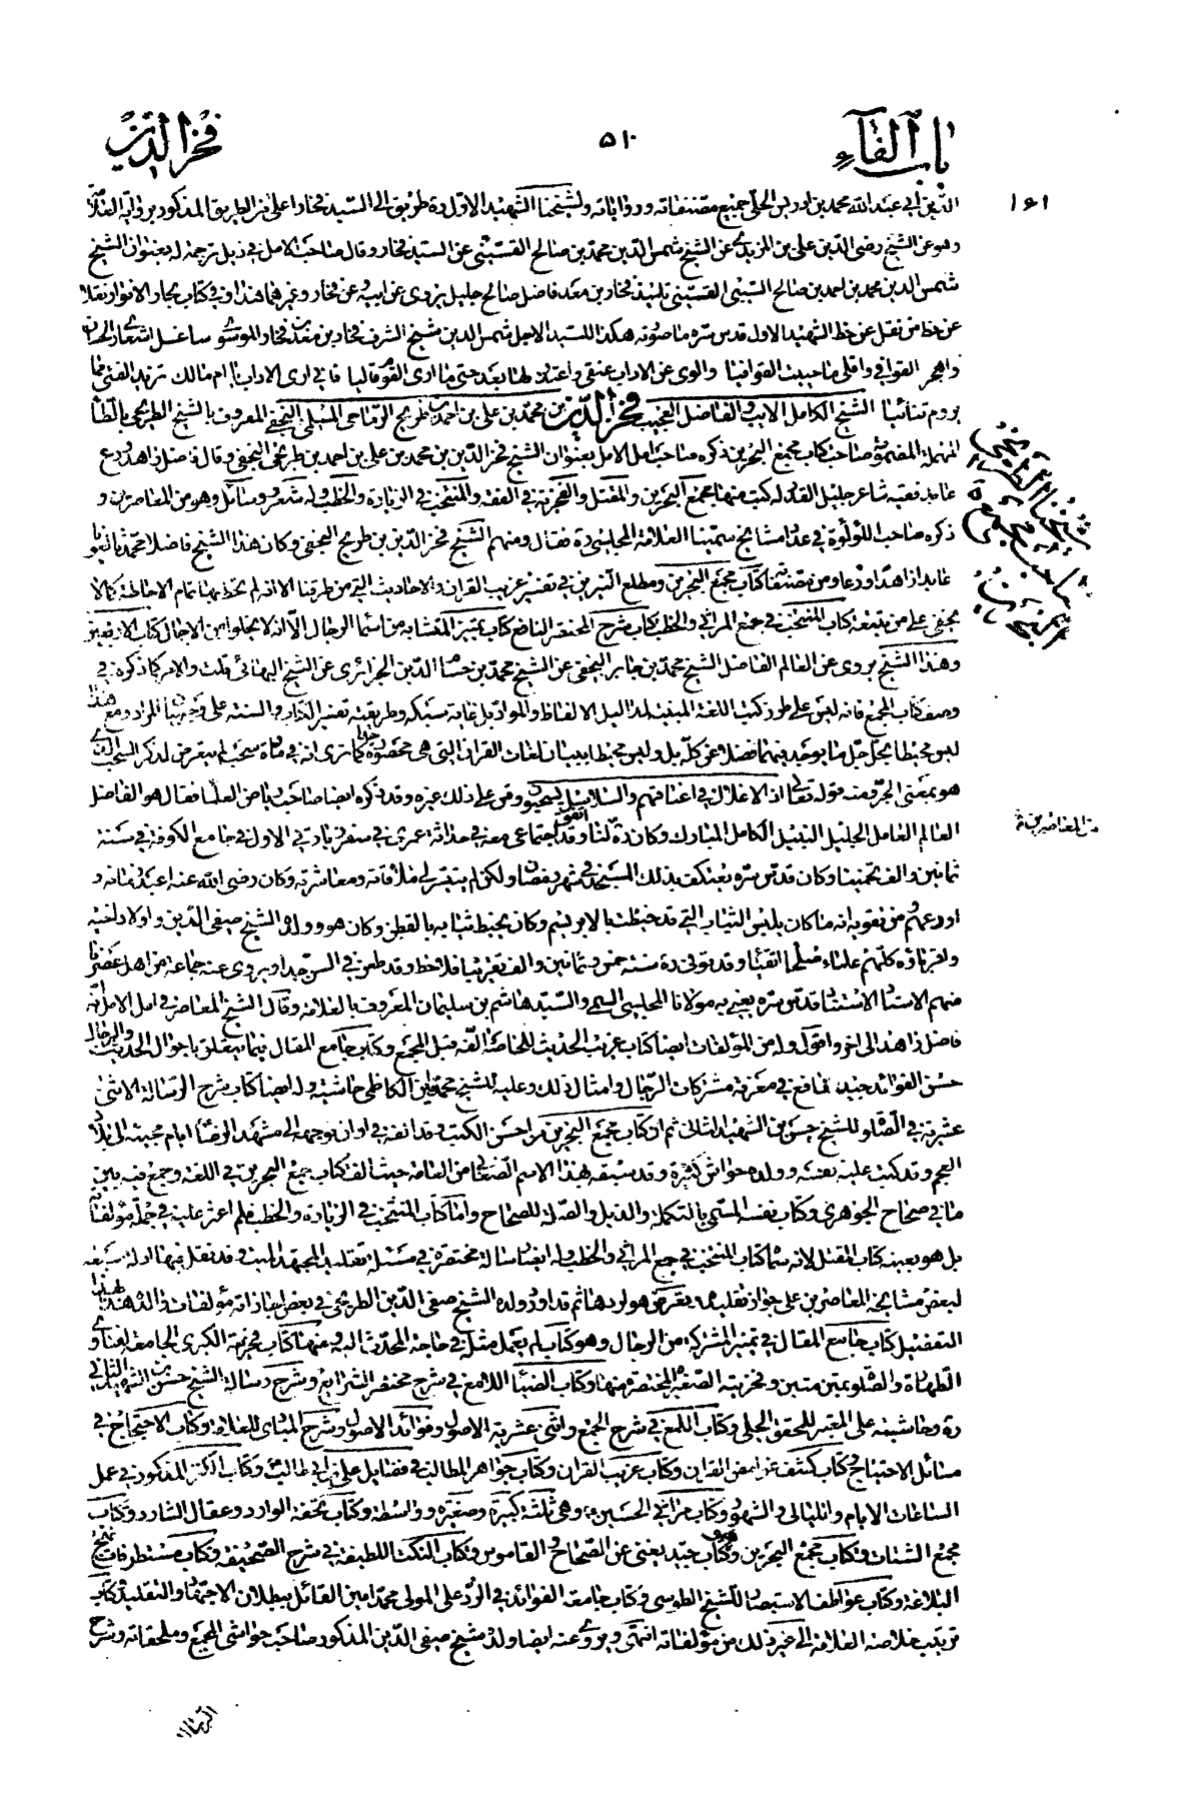 باب الفاء
٥١٠
فخر الدين
الدين أبي عبد الله محمد بن ادريس الحلي جميع مصنفاته ورواياته ولشيخنا الشهيد الاول ره طريق الى السيد فخار اعلى من الطريق المذكور برواية
وهو عن الشيخ رضى الدين على بن المزيدى عن الشيخ شمس الدين محمد بن صالح القسيني عن السيد فخار وقال صاحب الامل في ذيل ترجمة له بعنوان الشيخ
شمس الدين محمد بن احمد بن صالح السيبى القسيني تلميذ فخار بن معد فاضل صالح جليل يروى عن ابيه عن فخار وغيرهما هذا وفي كتاب بحار الانوار نقلا
عن خط من نقل عن خط الشهيد الاول قدس سره ما صورته هكذا للسيد الاجل شمس الدين شيخ الشرف فخار بن معد بن فخار الموسوى ساغسل اشعارى
واهجر القوافي واقلى ما حييت القوافيا والوى عن الاداب عنقي واعتذر لها بعد حتى ما ارى القوم قاليا فاني ارى الاداب يا ام مالك تزيد الفتى مما
يروم تنائيا الشيخ الكامل الاديب والفاضل العجيب فخر الدين بن محمد بن علي بن احمد بن طريح الرماحى المسلمى النجفى المعروف بالشيخ الطريحى بالطاء
المهملة المضمومة صاحب كتاب مجمع البحرين ذكره صاحب امل الامل بعنوان الشيخ فخر الدين بن محمد بن على بن احمد بن طريحى النجفى وقال فاضل زاهد ورع
عابد فقيه شاعر جليل القدر له كتب منها مجمع البحرين والمقتل والفخرية في الفقه والمنتخب في الزيارة والخطب وله شعر ورسائل وهو من المعاصرين و
ذكره صاحب اللؤلؤة في عداد مشايخ سمينا العلامة المجلسى ره فقال ومنهم الشيخ فخر الدين بن طريح النجفى وكان هذا الشيخ فاضلا محدثا لغويا
عابدا زاهدا ورعا ومن مصنفاته كتاب مجمع البحرين ومطلع النيرين في تفسير غريب القران والاحاديث التي من طرقنا الا انه لم يحط بها تمام الاحاطة كما لا
يخفى على من تتبعه كتاب المنتخب في جمع المراثي والخطب كتاب شرح المختصر النافع كتاب تمييز المتشابه من اسماء الرجال الا انه لا يخلو من الاجمال كتاب الاربعين
وهذا الشيخ يروى عن العالم الفاضل الشيخ محمد بن جابر النجفى عن الشيخ محمد بن حسام الدين الجزائرى عن الشيخ البهائي قلت والامر كما ذكره في
وصف كتاب المجمع فانه ليس على طور كتب اللغة المبينة لمداليل الالفاظ والمواد بل غاية سبكه وطريقته تفسير الكتاب والسنة على وجه المراد ومع هذا
ليس محيطا بجل جل ما يوجد فيهما فضلا عن كله بل وليس محيطا ببيان لغات القران التي هي محصورة جدا كما ترى انه في مادة سحب لم يتعرض لذكر السحب الذى
هو بمعنى الجر ومنه قوله تعالى اذ الاغلال في اعناقهم والسلاسل يسحبون وقس على ذلك غيره وقد ذكره ايضا صاحب رياض العلماء فقال هو الفاضل
العالم العامل الجليل النبيل الكامل المبارك وكان ره لنا وقد اتفق اجتماعى معه في حداثة عمرى في سفر زيارتي الاول في جامع الكوفة في سنة
ثمانين والف تخمينا وكان قدس سره يعتكف بذلك المسجد في شهر رمضان ولكن لم يتيسر لى ملاقاته ومعاشرته وكان رضى الله عنه اعبد زمانه و
اورعهم من تقويه انه ما كان يلبس الثياب التي قد خيطت بالابريسم وكان يخيط ثيابه بالقطن وكان هو وولده الشيخ صفي الدين واولاد اخيه
واقرباؤه كلهم علماء صلحاء اتقياء وقد توفى ره سنة خمس وثمانين والف تقريبا فلاحظ وقد طعن في السن جدا ويروى عنه جماعة من اهل عصرنا
منهم الاستاد الاستناد قدس سره يعنى به مولانا المجلسي السمى والسيد هاشم بن سليمان المعروف بالعلامة وقال الشيخ المعاصر في امل الامل انه
فاضل زاهد الى اخره واقول وله من المؤلفات ايضا كتاب غريب الحديث للخاصة الفه قبل المجمع وكتاب جامع المقال فيما يتعلق باحوال الحديث والرجال
حسن الفوائد جيد نافع في معرفة مشتركات الرجال وامثال ذلك وعليه للشيخ محمد امين الكاظمى حاشية وله ايضا كتاب شرح الرسالة الاثنى
عشرية في الصلوة للشيخ حسن بن الشهيد الثاني ثم ان كتاب مجمع البحرين من احسن الكتب وقد الفه في اوان توجهه الى مشهد الرضا ايام مجيئه الى بلاد
العجم وقد كتب عليه نفسه وولده حواش كثيرة وقد سبقه بهذا الاسم الصغاني من العامة حيث الف كتاب مجمع البحرين في اللغة وجمع فيه بين
ما في صحاح الجوهرى وكتاب نفسه المسمى بالتكملة والذيل والصلة للصحاح واما كتاب المنتخب في الزيارة والخطب فلم اعثر عليه في جملة مؤلفاته
بل هو بعينه كتاب المقتل لانه سماه كتاب المنتخب في جمع المراثي والخطب وله ايضا رسالة مختصرة في مسئلة تقليد المجتهد الميت وقد نقل فيها ادلة سبعة
لبعض مشايخه المعاصرين على جواز تقليده يتعرض هو لردها ثم قد اورد ولده الشيخ صفى الدين الطريحى في بعض اجازاته مؤلفات والده بهذا
التفصيل كتاب جامع المقال في تمييز المشتركة من الرجال وهو كتاب لم يعمل مثله في حاجة المحدث اليه ومنها كتاب فخرية الكبرى الجامعة لفتاوى
الطهارة والصلوة بمتن متين وفخريته الصغيرة المختصرة منها وكتاب الضياء اللامع في شرح مختصر الشرايع وشرح رسالة الشيخ حسن بن الشهيد الثاني
ره وحاشيته على المعتبر للمحقق الحلى وكتاب اللمع في شرح الجمع واثنى عشرية الاصول وفوائد الاصول وشرح المبادى للعلامة وكتاب الاحتجاج في
مسائل الاحتياج وكتاب كشف غوامض القران وكتاب غريب القران وكتاب جواهر المطالب في فضايل علي بن ابي طالب وكتاب الكنز المذكور في عمل
الساعات الايام والليالى والشهور وكتاب مراثي الحسين وهي ثلثة كبيرة وصغيرة وواسطة وكتاب تحفة الوارد وعقال الشارد وكتاب
مجمع الشتات وكتاب مجمع البحرين وهو كتاب جيد يغنى عن الصحاح والقاموس وكتاب النكت اللطيفة في شرح الصحيفة وكتاب مستطرفات نهج
البلاغة وكتاب عواطف الاستبصار للشيخ الطوسى وكتاب جامعة الفوائد في الرد على المولى محمد امين القائل ببطلان الاجتهاد والتقليد وكتاب
ترتيب خلاصة العلامة الى غير ذلك من مؤلفاته انتهى ويروى عنه ايضا ولده شيخ صفى الدين المذكور صاحب حواشى المجمع وملحقاته وشرح
شيخنا الطريحى النجفى
صاحب مجمع البحرين
من المعاصرين